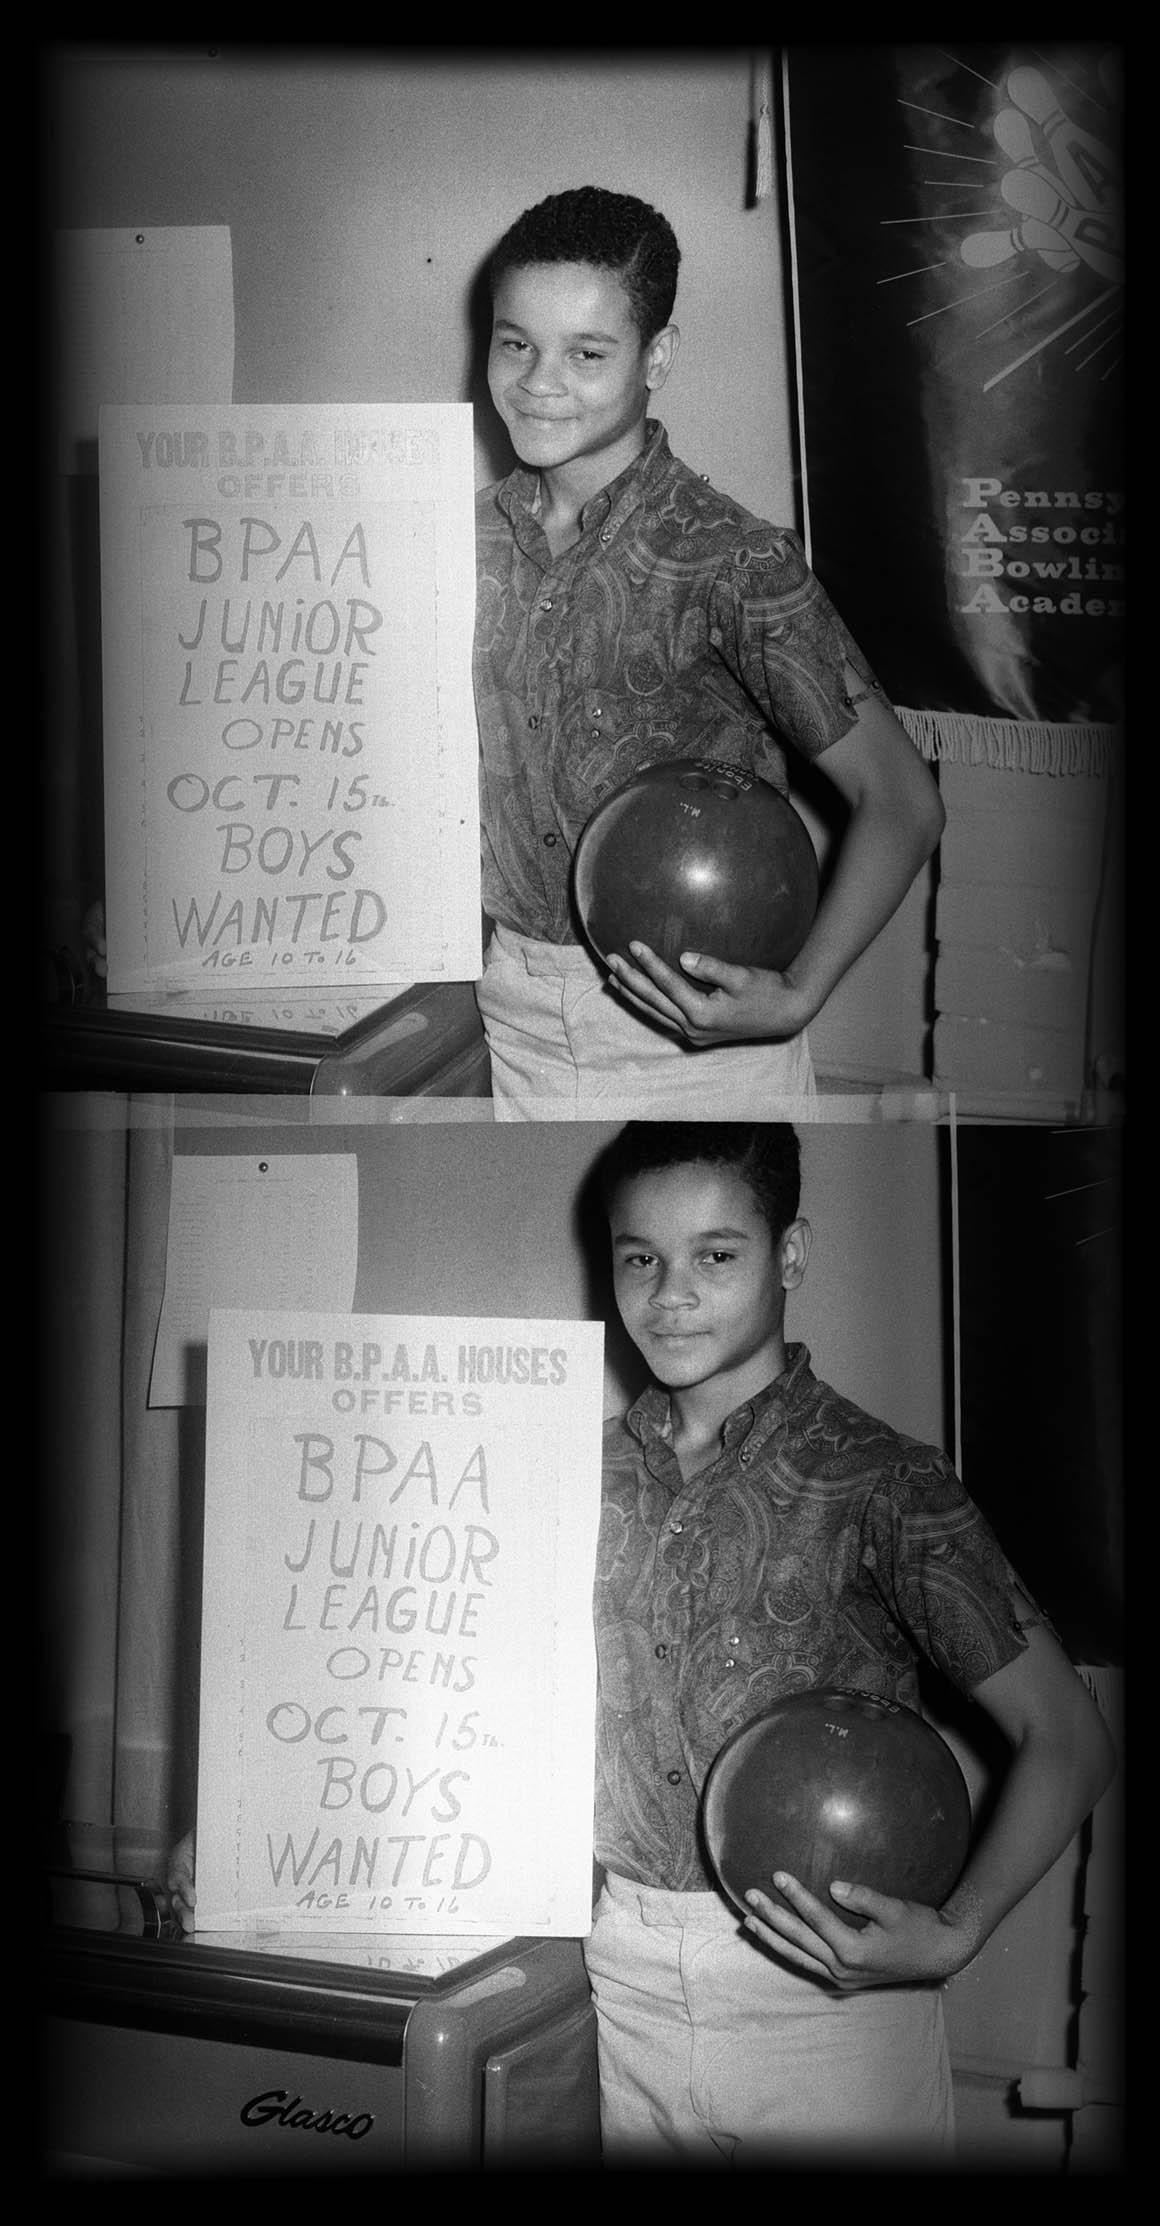 YOUR B.P.A.A. HOUSES
OFFERS
BPAA
JUNiOR
LEAGUE
OPENS
OCT. 15Th.
BOYS
WANTED
AGE 10 To 16
Ebonite
M.L.
Pennsy
Associ
Bowlin
Academ
YOUR B.P.A.A. HOUSES
OFFERS
BPAA
JUNiOR
LEAGUE
OPENS
OCT. 15Th.
BOYS
WANTED
AGE 10 To 16
Ebonite
M.L.
Glasco